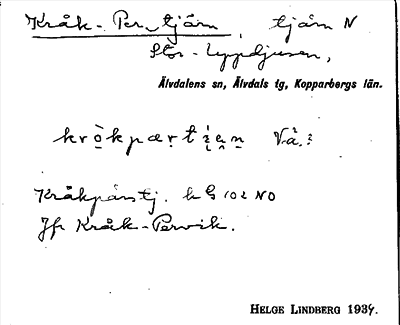 Kråk-Per-tjärn, tjärn N
Stor-Lyppdjusen,
Älvdalens sn, Älvdals tg, Kopparbergs län.
Vå.:
Kråkpärstj. k G 102 NO
Jfr Kråk-Pervik.
HELGE LINDBERG 1937.